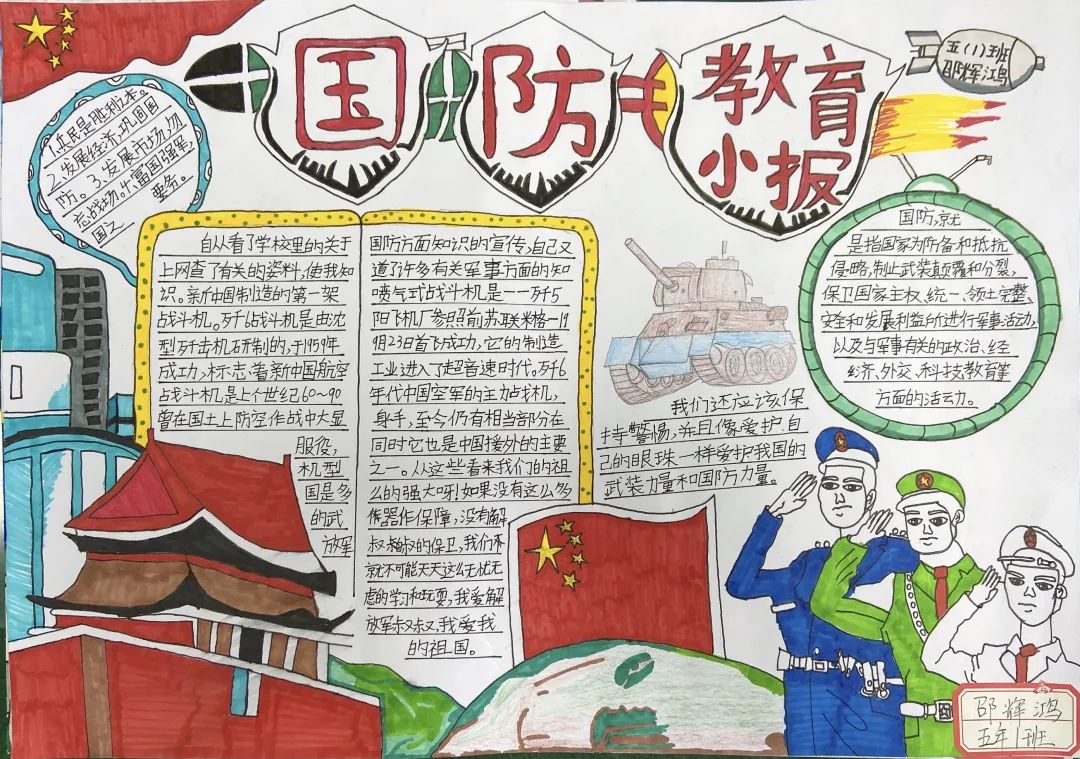 国防教育
小报
五(1)班
邵辉鸿
1.兵民是胜利之本。
2.发展经济,巩固国
防。3、发展市场,勿
忘战场。4、富国强军,
国之
要务。
自从看了学校里的关于
上网查了有关的资料,使我知
识。新中国制造的第一架
战斗机。歼6战斗机是由沈
型歼击机研制的,于1959年
成功,标志着新中国航空
战斗机,是上个世纪60~90
曾在国土上防空作战中大显
服役,
机型
国是多
的武
放军
国防方面知识的宣传,自己又
道了许多有关军事方面的知
喷气式战斗机是一一歼5
阳飞机厂参照前苏联米格一19
9月23日首飞成功,它的制造
工业进入了超音速时代,歼6
年代中国空军的主力战机,
身手,至今仍有相当部分在
同时它也是中国援外的主要
之一。从这些看来我们的祖
么的强大呀!如果没有这么多
器作保障,没有解
叔叔的保卫,我们
就不可能天天这么无忧无
虑的学习和玩耍,我爱解
放军叔叔,我爱我
的祖国。
国防,就
是指国家为防备和抵抗
侵略,制止武装颠覆和分裂,
保卫国家主权、统一、领土完整、
安全和发展利益所进行军事活动,
以及与军事有关的政治、经
经济、外交、科技教育等
方面的活动。
我们还应该保
持警惕,并且像爱护自
己的眼珠一样爱护我国的
武装力量和国防力量。
邵辉鸿
五年1班